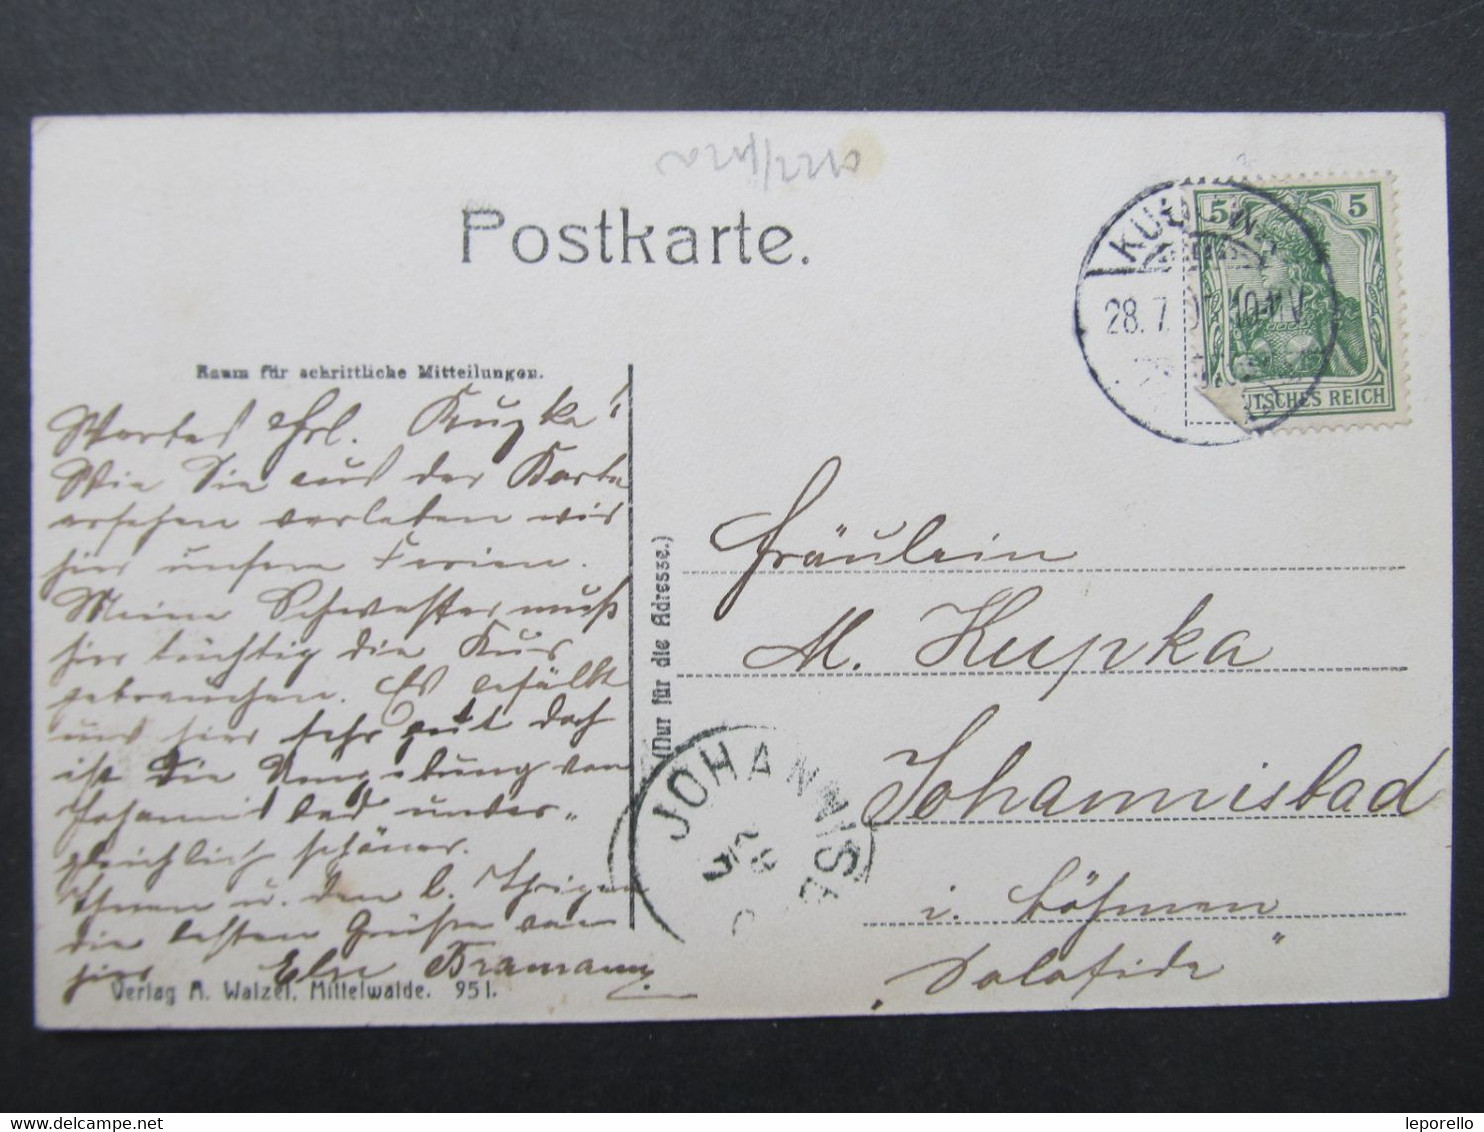 Postkarte.
5 5
KUDOWA
28.7. 10-11V
DEUTSCHES REICH
Raum für schriftliche Mitteilungen.
Wertes Frl. Kupka!
Wie Sie aus der Karte
ersehen verleben wir
hier unsere Ferien.
Meine Schwester muß
hier tüchtig die Kur
gebrauchen. Es gefällt
uns hier sehr gut doch
ist die Umgebung von
Johannisbad unver-
gleichlich schöner.
Ihnen u. den l. Ihrigen
die besten Grüße von
hier Else Bramann.
(Nur für die Adresse.)
Fräulein
M. Kupka
Johannisbad
i. Böhmen
JOHANNISBAD
Verlag A. Walzel, Mittelwalde. 951.
leporello